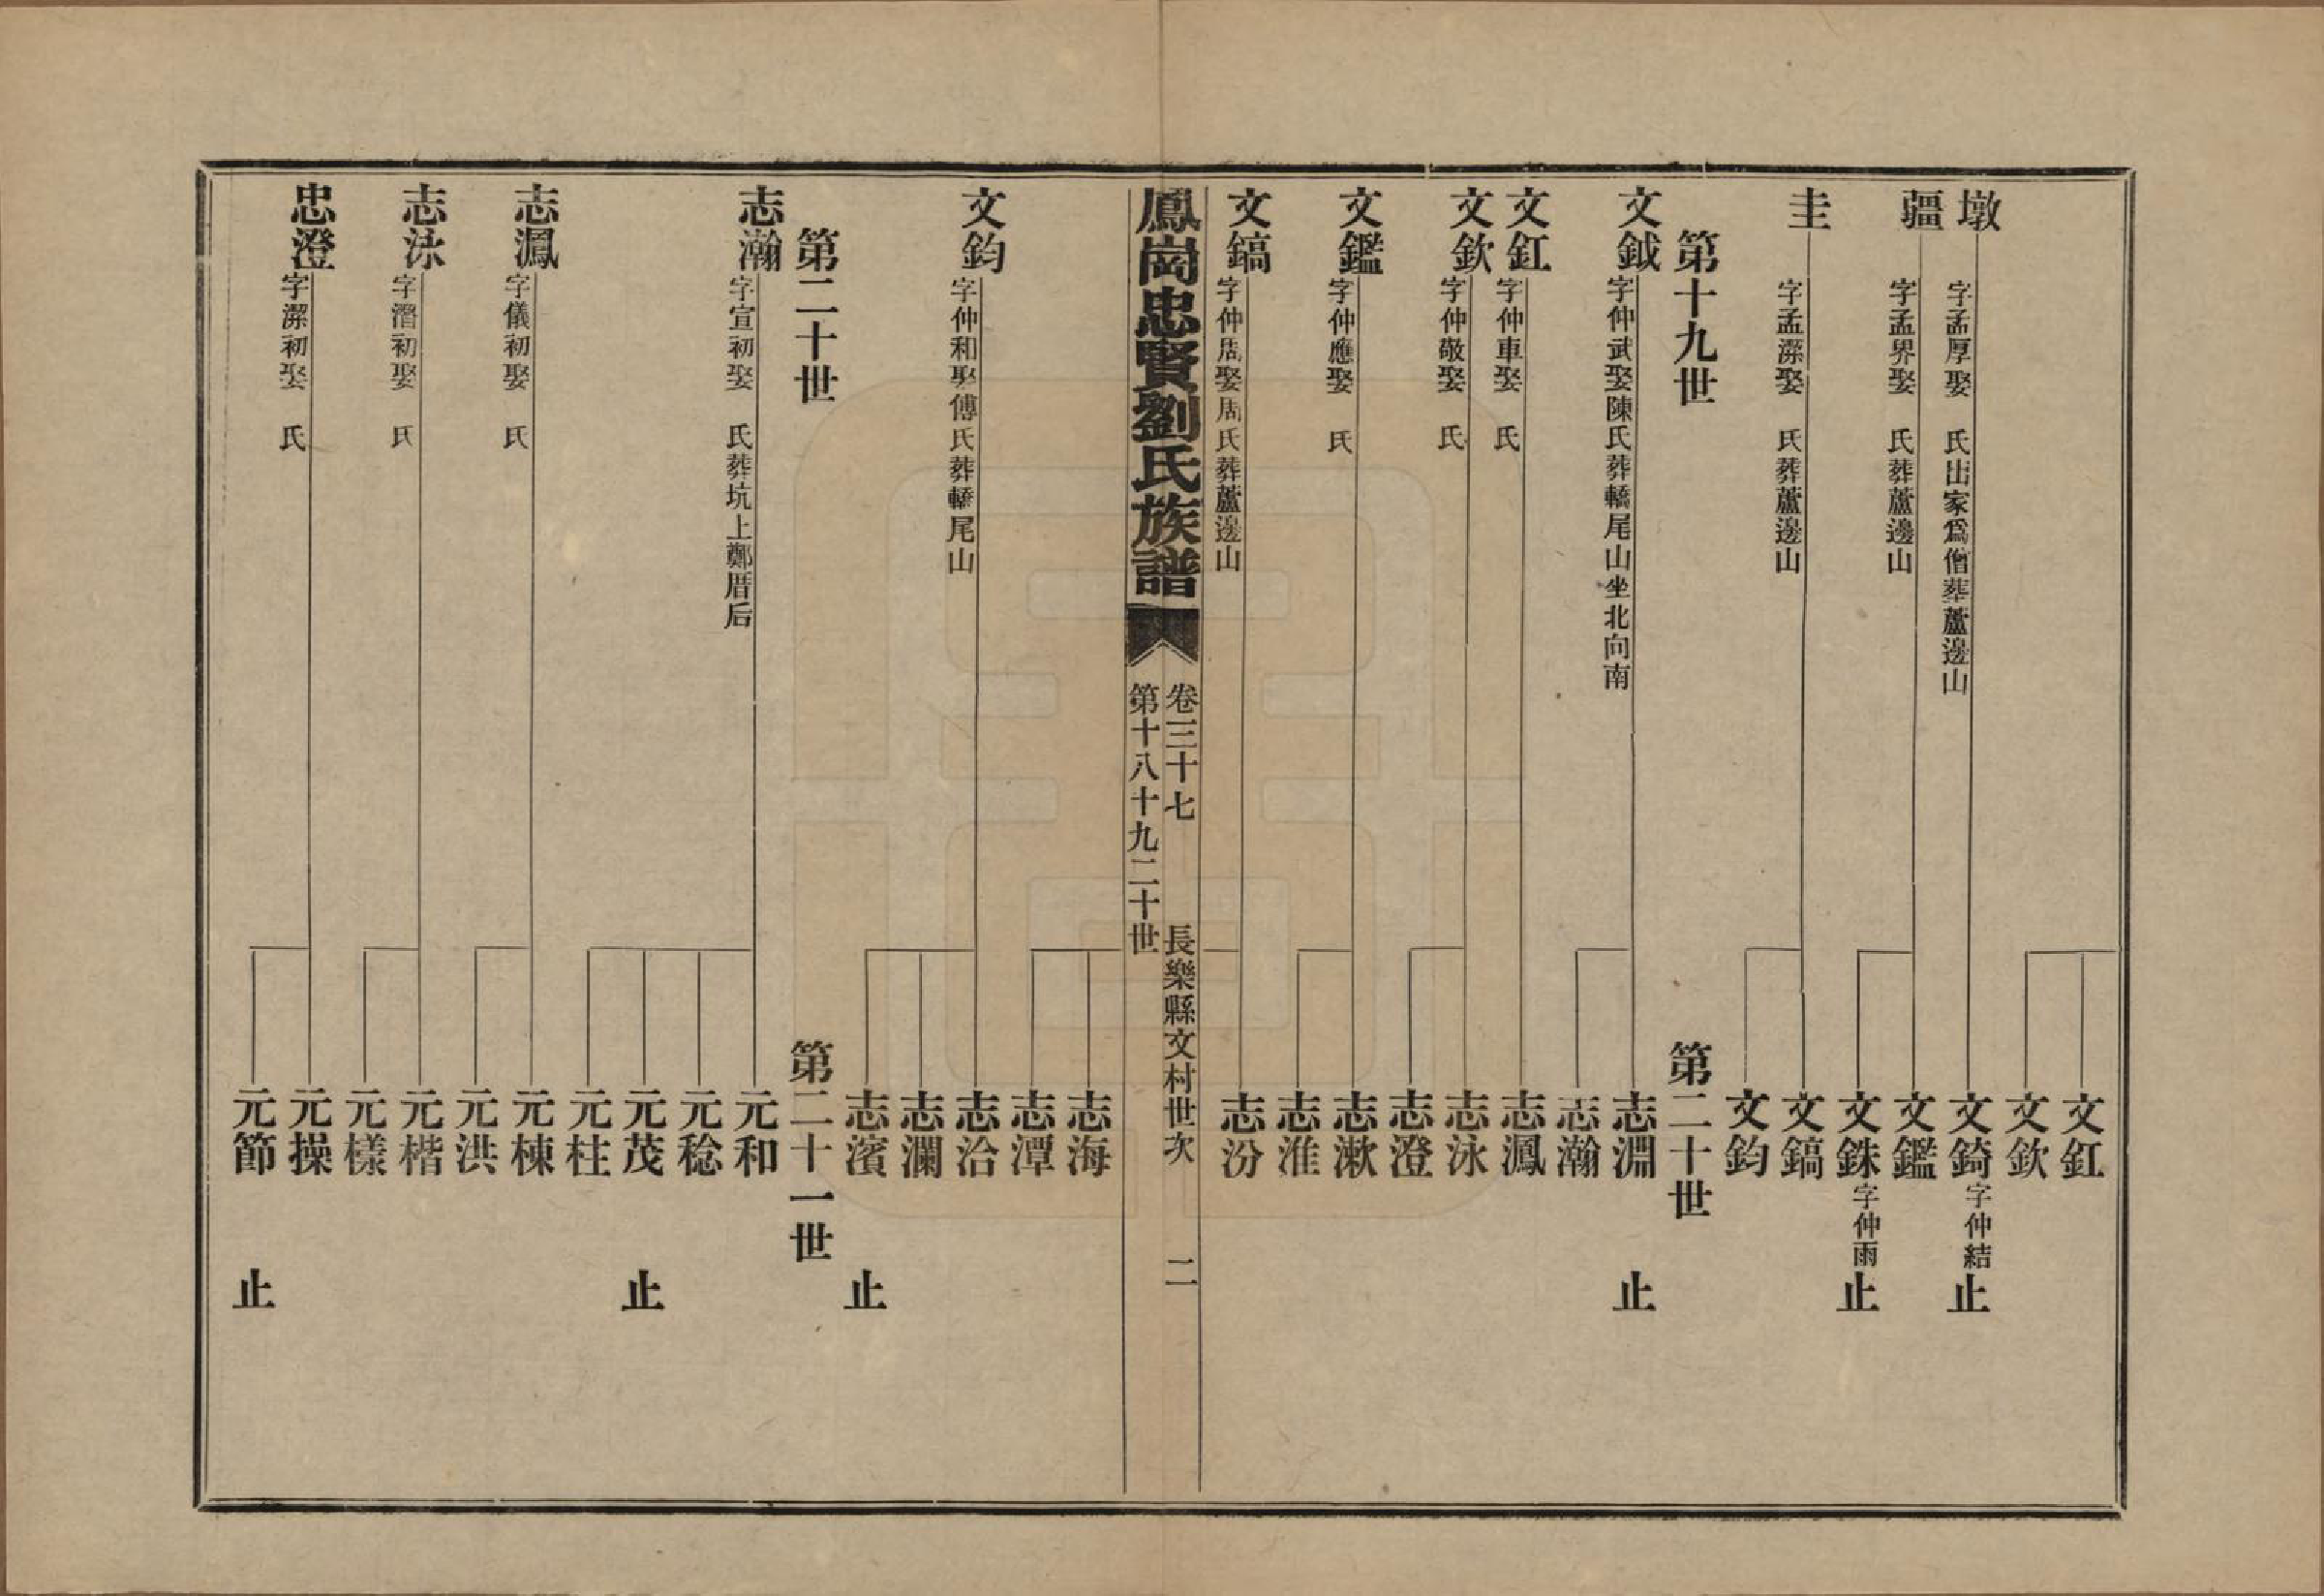 文釭
文欽
墩
字孟厚娶　氏出家爲僧葬蘆邊山
文錡字仲結止
疆
字孟界娶　氏葬蘆邊山
文鑑
文銖字仲雨止
圭
字孟潔娶　氏葬蘆邊山
文鎬
文鈞
第十九世
第二十世
文鉞
字仲武娶陳氏葬轎尾山坐北向南
志淵止
志瀚
文釭
字仲車娶　氏
志鳳
文欽
字仲敬娶　氏
志泳
志澄
文鑑
字仲應娶　氏
志漱
志淮
文鎬
字仲周娶周氏葬蘆邊山
志汾
鳳崗忠賢劉氏族譜
卷三十七
長樂縣文村世次
二
第十八十九二十世
志海
志潭
文鈞
字仲和娶傅氏葬轎尾山
志洽
志瀾
志濱止
第二十世
第二十一世
志瀚
字宣初娶　氏葬坑上鄭厝后
元和
元稔
元茂止
元柱
志鳳
字儀初娶　氏
元棟
元洪
志泳
字潛初娶　氏
元楷
元樣
忠澄
字潔初娶　氏
元操
元節止